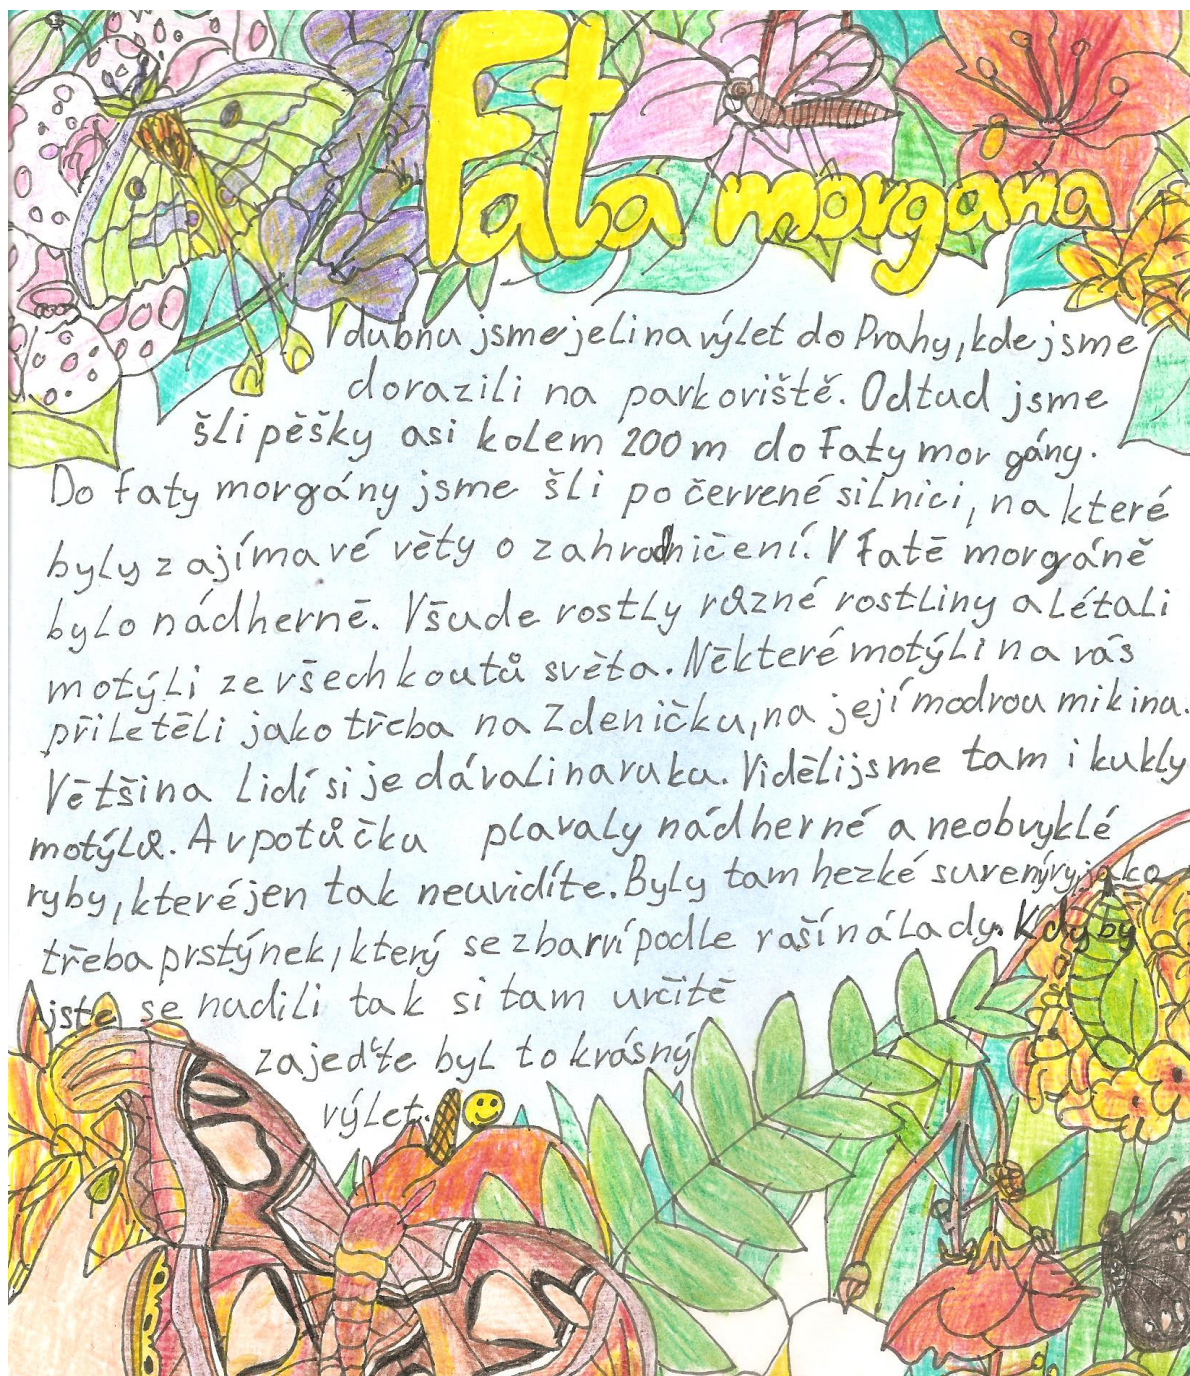 Fata morgána
V dubnu jsme jeli na výlet do Prahy, kde jsme
dorazili na parkoviště. Odtud jsme
šli pěšky asi kolem 200 m do Faty morgány.
Do Faty morgány jsme šli po červené silnici, na které
byly zajímavé věty o zahradničení. V Fatě morgáně
bylo nádherně. Všude rostly různé rostliny a létali
motýli ze všech koutů světa. Některé motýli na vás
přiletěli jako třeba na Zdeničku, na její modrou mikina.
Většina lidí si je dávali na ruku. Viděli jsme tam i kukly
motýlů. A v potůčku plavaly nádherné a neobvyklé
ryby, které jen tak neuvidíte. Byly tam hezké suvenýry, jako
třeba prstýnek, který se zbarví podle vaší nálady. Kdyby
jste se nudili tak si tam určitě
zajeďte byl to krásný
výlet.